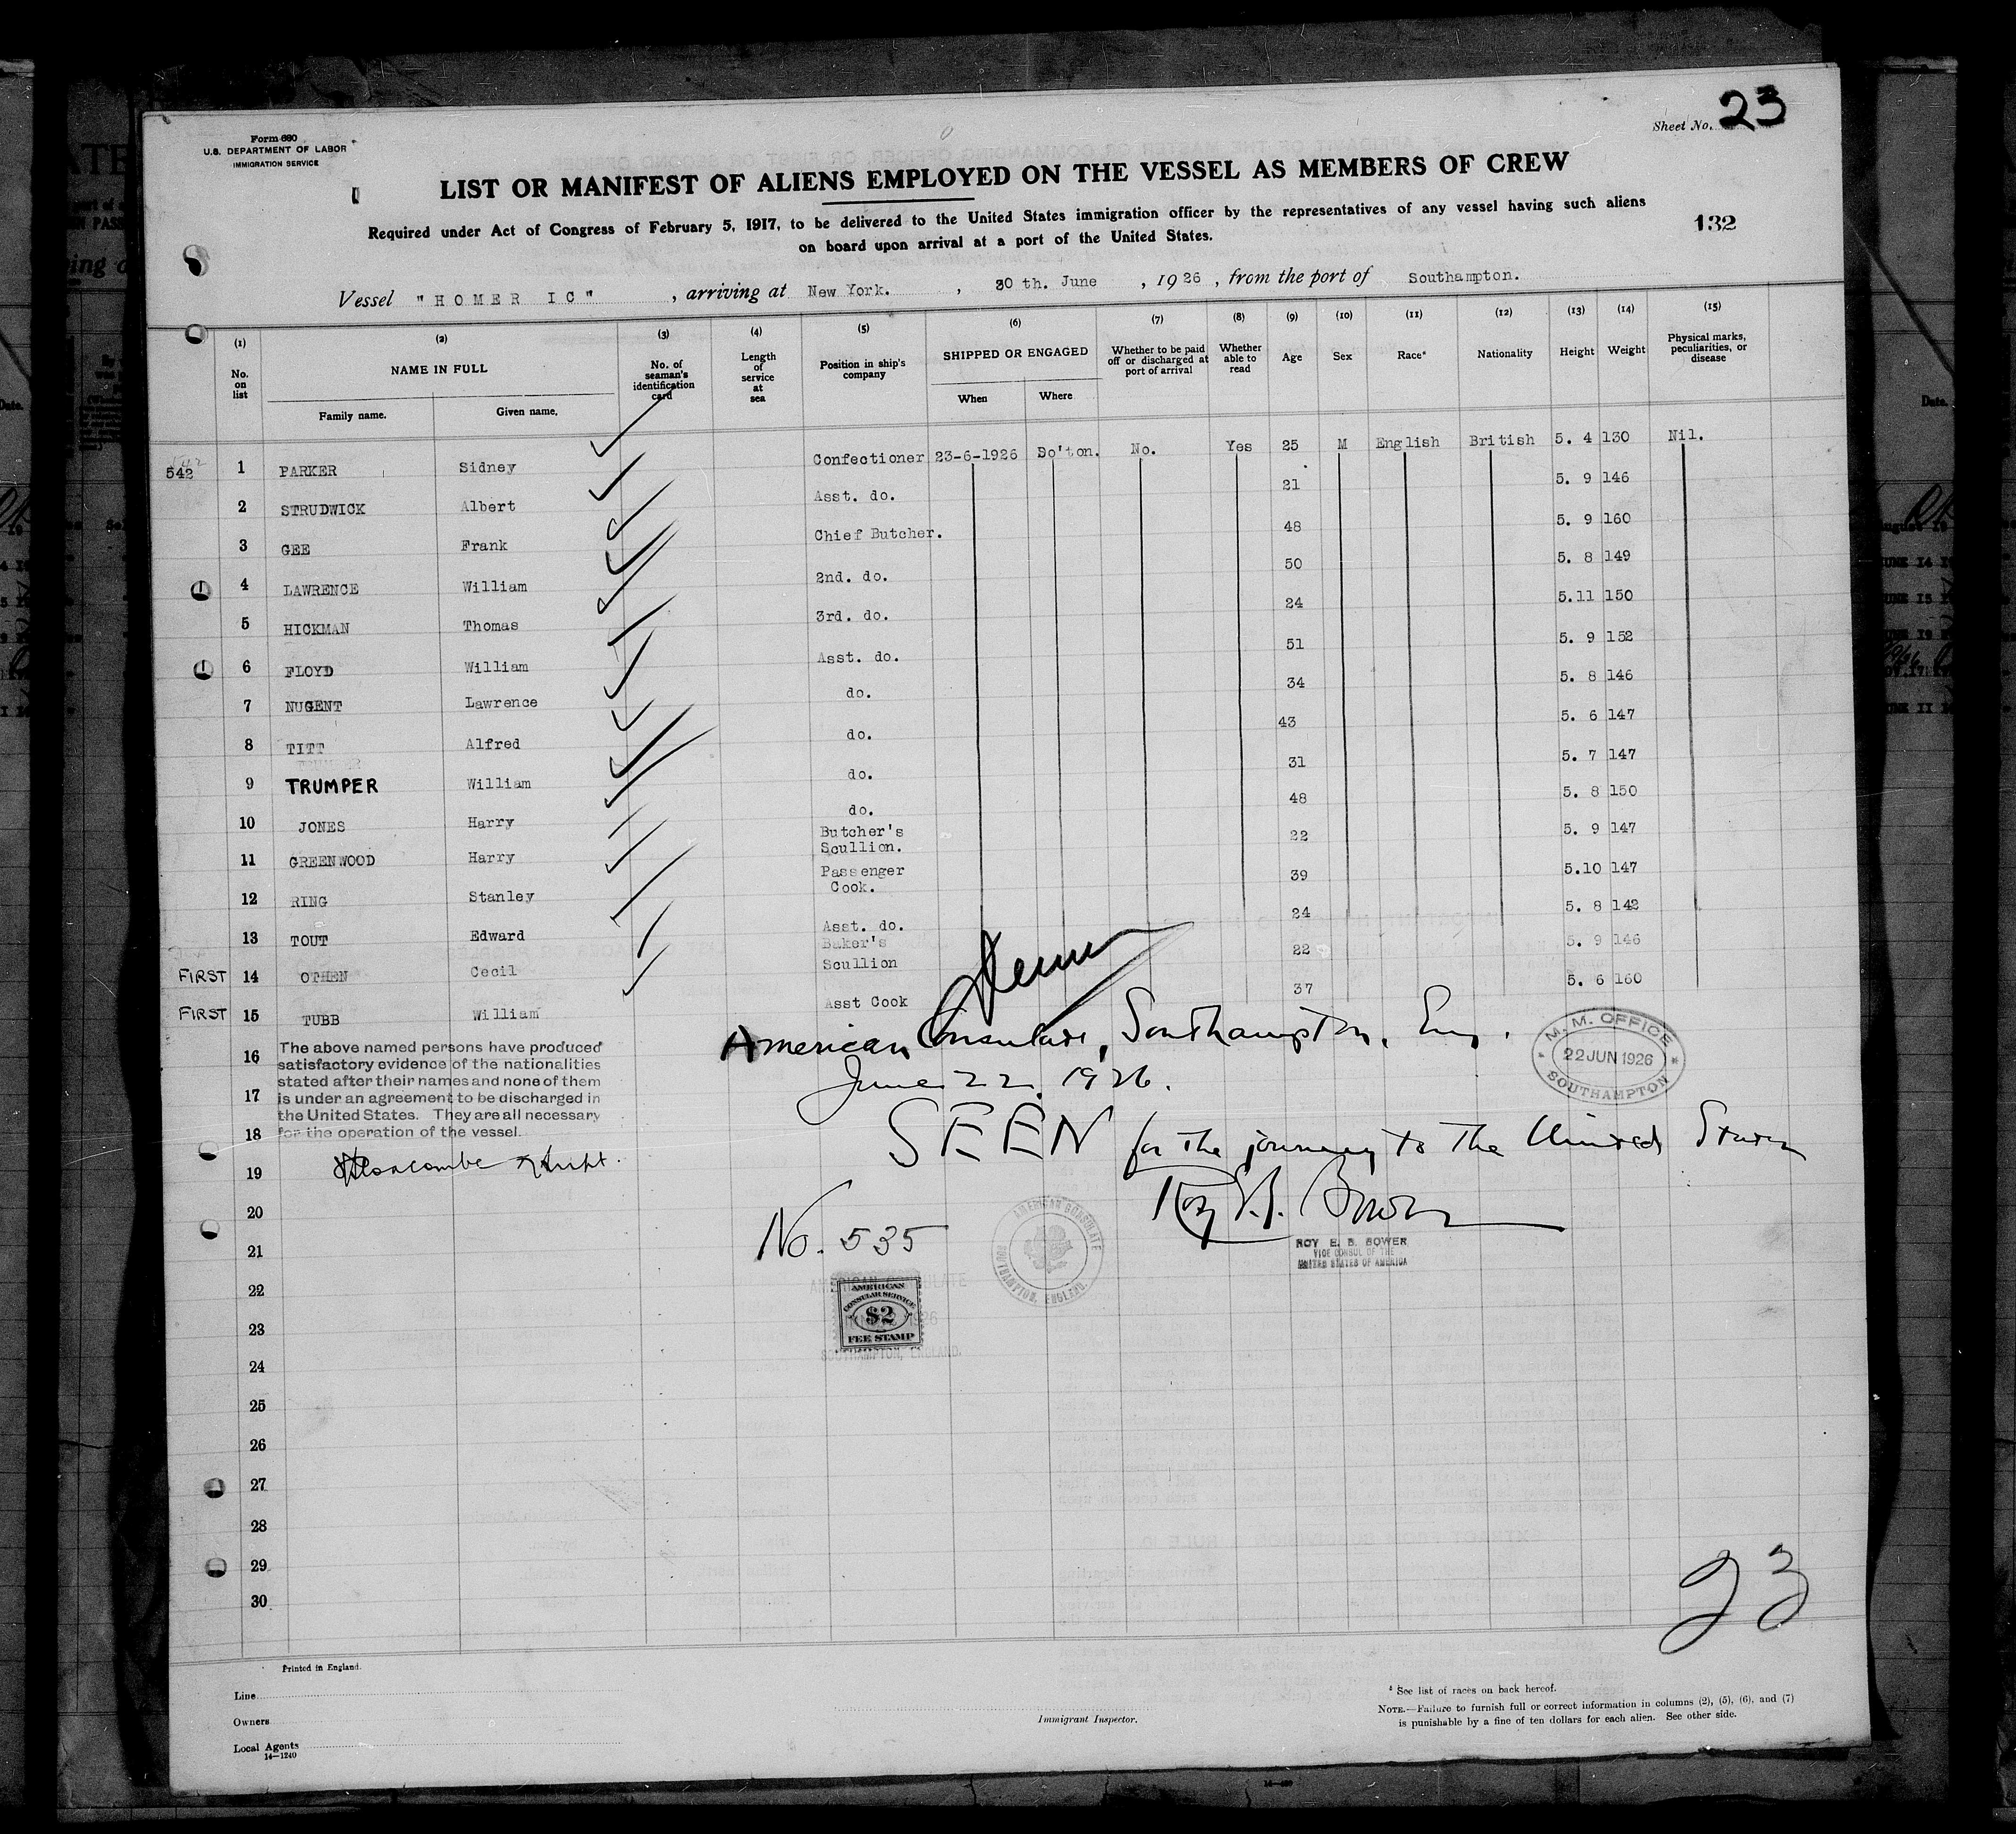 Sheet No. 23
Form 680
U.S. DEPARTMENT OF LABOR
IMMIGRATION SERVICE
LIST OR MANIFEST OF ALIENS EMPLOYED ON THE VESSEL AS MEMBERS OF CREW
Required under Act of Congress of February 5, 1917, to be delivered to the United States immigration officer by the representatives of any vessel having such aliens
on board upon arrival at a port of the United States.
132
Vessel "HOMER IC", arriving at New York., 30 th. June, 1926, from the port of Southampton.
(1) (2) (3) (4) (5) (6) (7) (8) (9) (10) (11) (12) (13) (14) (15)
No. on list
NAME IN FULL
Family name. Given name.
No. of seaman's identification card
Length of service at sea
Position in ship's company
SHIPPED OR ENGAGED
When Where
Whether to be paid off or discharged at port of arrival
Whether able to read
Age Sex Race* Nationality Height Weight
Physical marks, peculiarities, or disease
542 1 PARKER Sidney Confectioner 23-6-1926 So'ton. No. Yes 25 M English British 5. 4 130 Nil.
2 STRUDWICK Albert Asst. do. 21 5. 9 146
3 GEE Frank Chief Butcher. 48 5. 9 160
4 LAWRENCE William 2nd. do. 50 5. 8 149
5 HICKMAN Thomas 3rd. do. 24 5.11 150
6 FLOYD William Asst. do. 51 5. 9 152
7 NUGENT Lawrence do. 34 5. 8 146
8 TITT Alfred do. 43 5. 6 147
9 TRUMPER William do. 31 5. 7 147
10 JONES Harry do. 48 5. 8 150
11 GREENWOOD Harry Butcher's Scullion. 22 5. 9 147
12 RING Stanley Passenger Cook. 39 5.10 147
13 TOUT Edward Asst. do. 24 5. 8 142
FIRST 14 OTHEN Cecil Baker's Scullion 22 5. 9 146
FIRST 15 TUBB William Asst Cook 37 5. 6 160
16
17
18
19
20
21
22
23
24
25
26
27
28
29
30
The above named persons have produced
satisfactory evidence of the nationalities
stated after their names and none of them
is under an agreement to be discharged in
the United States. They are all necessary
for the operation of the vessel.
American Consulate, Southampton, Eng.
June 22. 1926.
SEEN for the journey to the United States
M. M. OFFICE
22 JUN 1926
SOUTHAMPTON
Roy E. B. Bower
ROY E. B. BOWER
VICE CONSUL OF THE
UNITED STATES OF AMERICA
No. 535
AMERICAN CONSULATE
SOUTHAMPTON, ENGLAND.
AMERICAN
CONSULAR SERVICE
$2
FEE STAMP
SOUTHAMPTON, ENGLAND.
23
Printed in England.
Line
Owners
Local Agents
14—1240
Immigrant Inspector.
* See list of races on back hereof.
NOTE.—Failure to furnish full or correct information in columns (2), (5), (6), and (7)
is punishable by a fine of ten dollars for each alien. See other side.